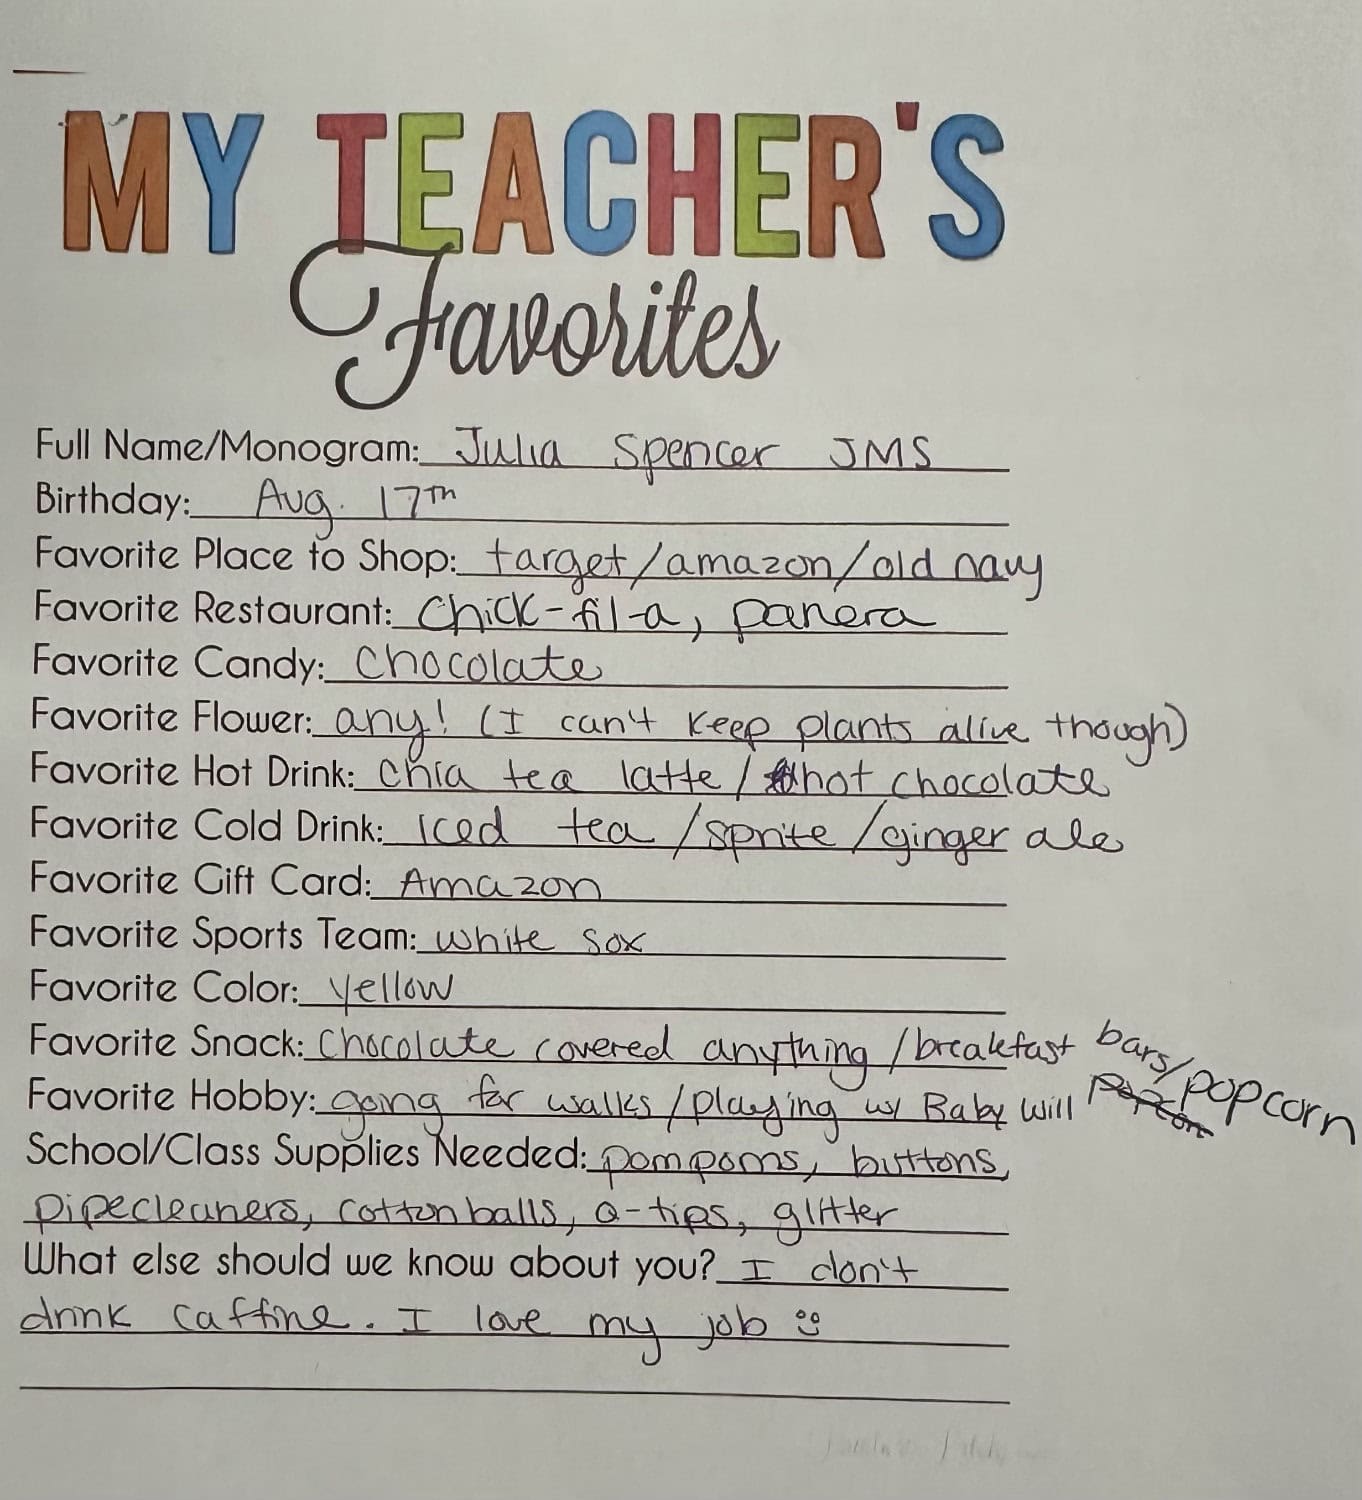 MY TEACHER'S
Favorites
Full Name/Monogram: Julia Spencer JMS
Birthday: Aug. 17th
Favorite Place to Shop: target/amazon/old navy
Favorite Restaurant: Chick-fil-a, panera
Favorite Candy: Chocolate
Favorite Flower: any! (I can't keep plants alive though)
Favorite Hot Drink: chia tea latte/hot chocolate
Favorite Cold Drink: Iced tea/sprite/ginger ale
Favorite Gift Card: Amazon
Favorite Sports Team: white sox
Favorite Color: yellow
Favorite Snack: Chocolate covered anything/breakfast bars/popcorn
Favorite Hobby: going for walks/playing w/ Baby Will
School/Class Supplies Needed: pompoms, buttons,
pipecleaners, cotton balls, Q-tips, glitter
What else should we know about you? I don't
drink caffine. I love my job